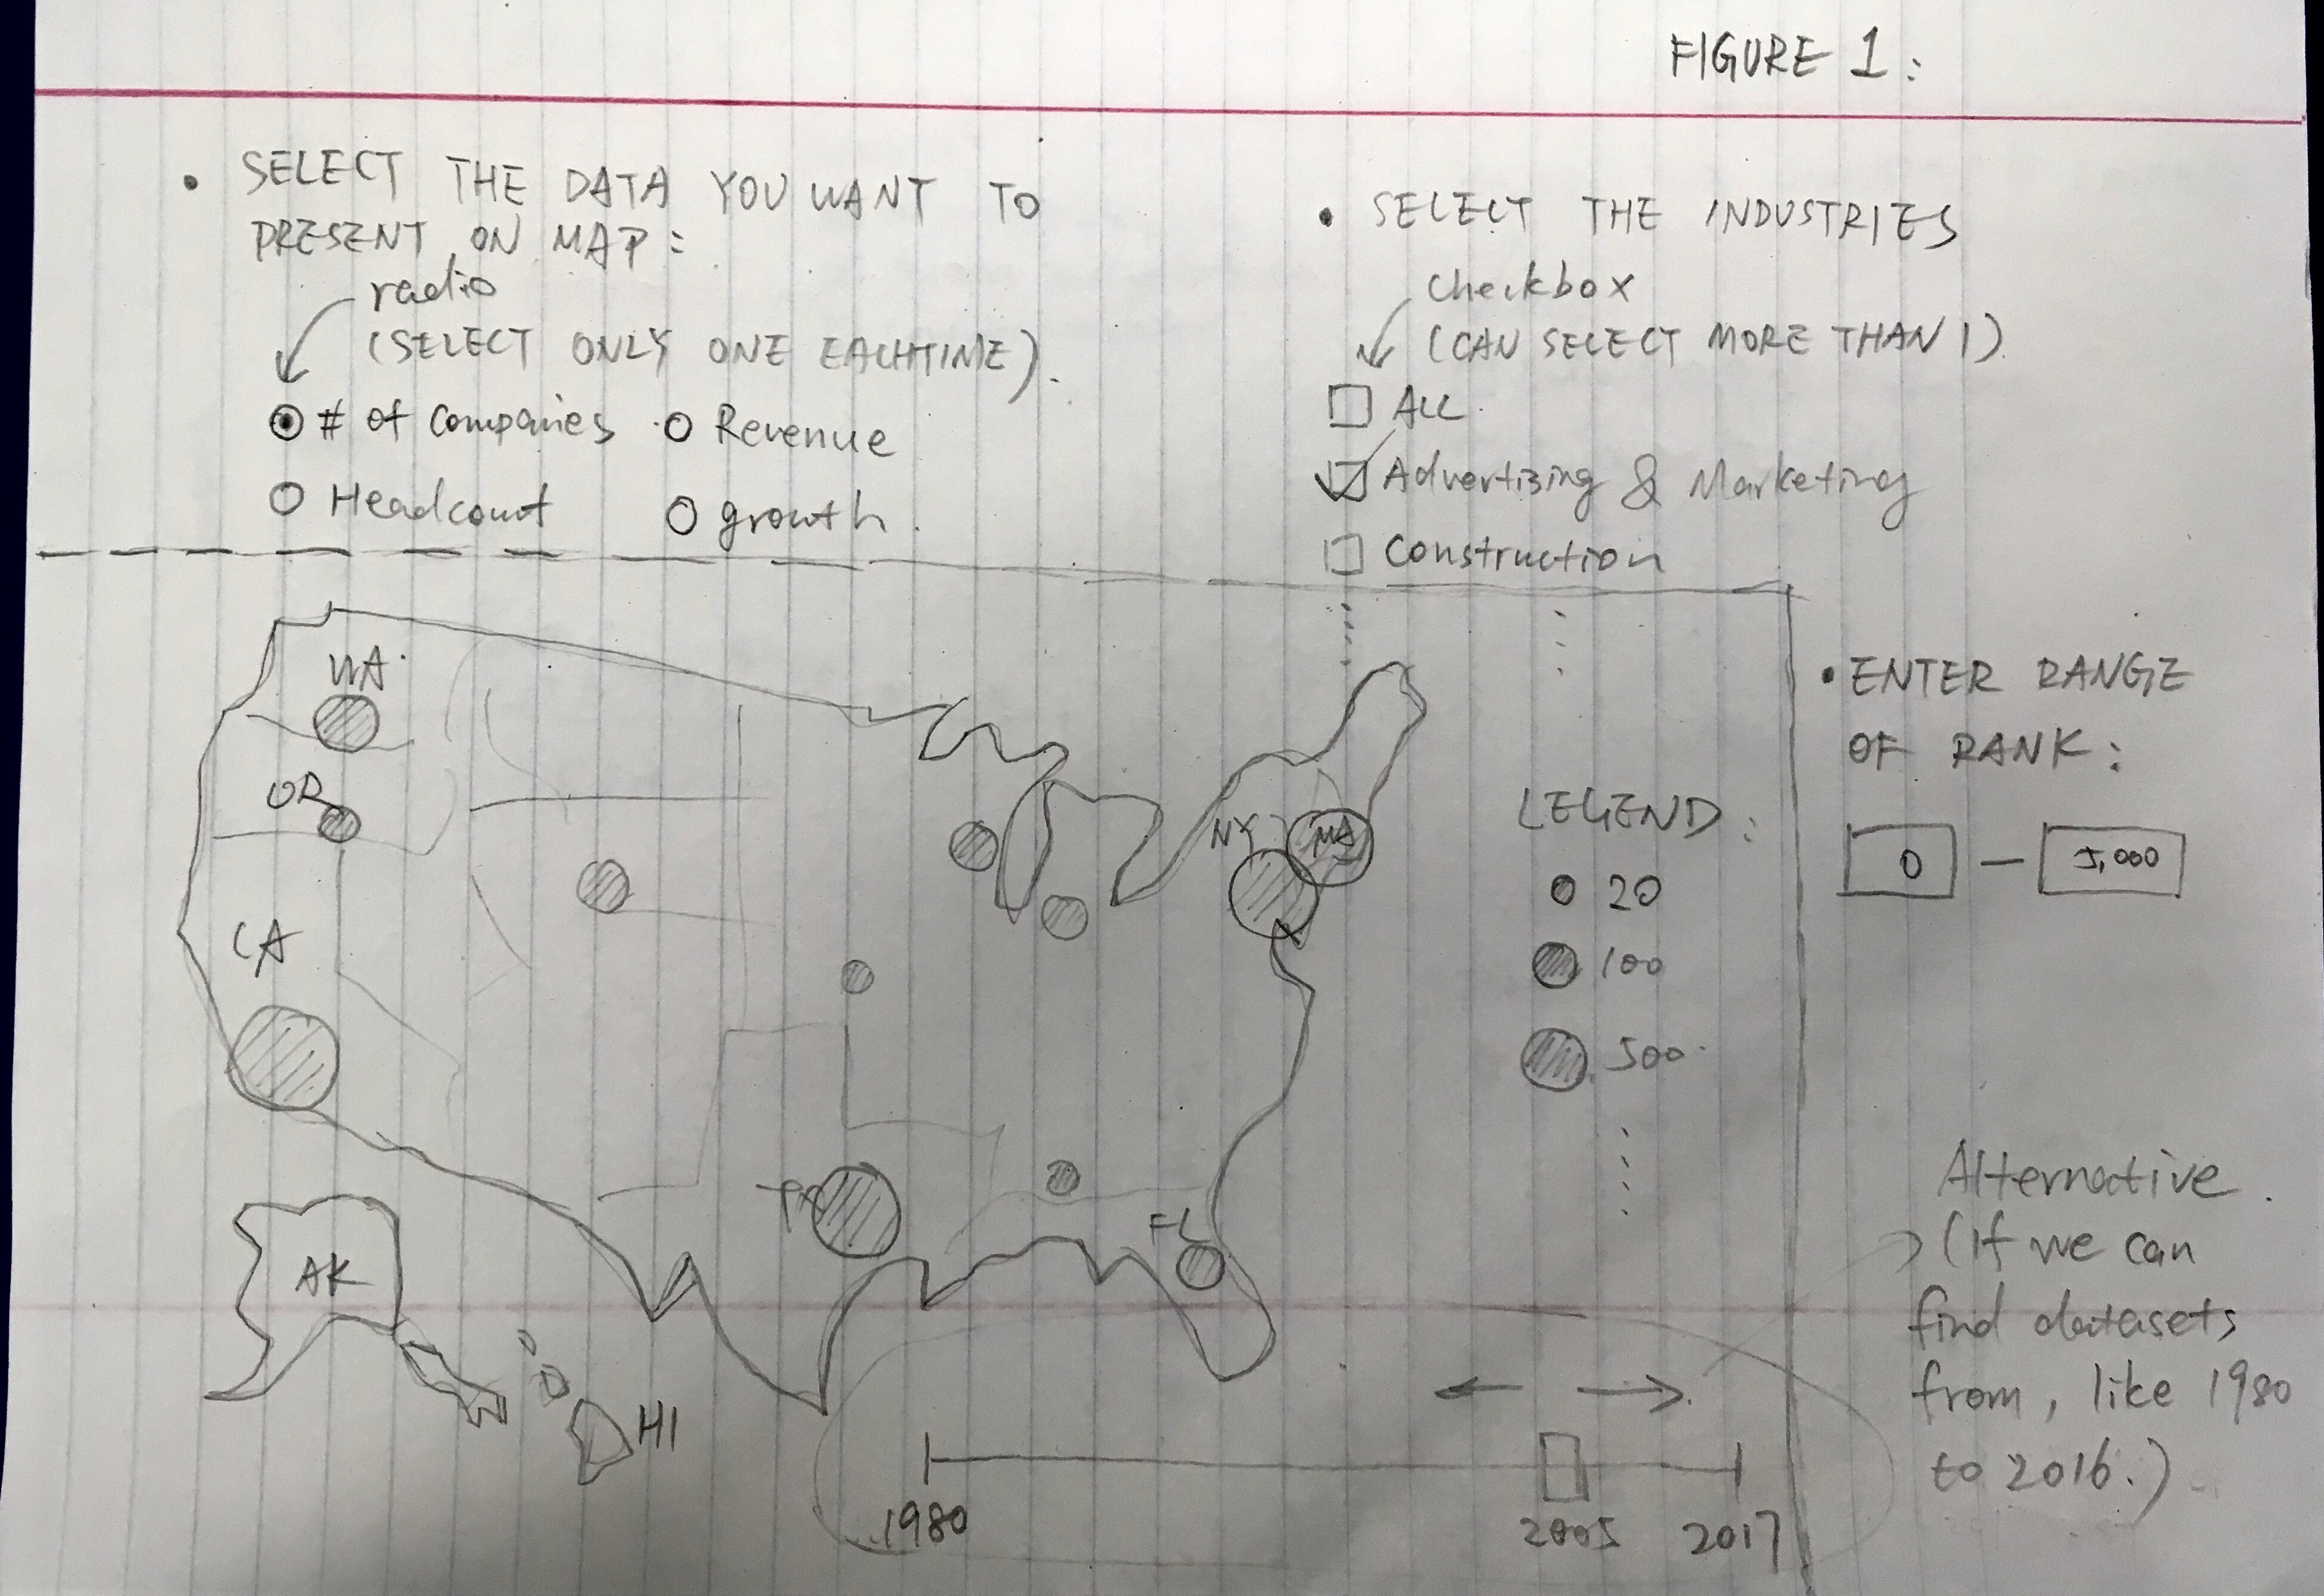 FIGURE 1:
• SELECT THE DATA YOU WANT TO
PRESENT ON MAP:
radio
(SELECT ONLY ONE EACHTIME).
# of Companies
Revenue
Headcount
growth.
• SELECT THE INDUSTRIES
Checkbox
(CAN SELECT MORE THAN 1).
ALL.
Advertizing & Marketing
Construction
WA
OR
CA
NY
MA
FL
AK
HI
LEGEND:
20
100
500
• ENTER RANGE
OF RANK:
0 — 5,000
Alternative.
(If we can
find datasets
from, like 1980
to 2016.)
1980
2005
2017